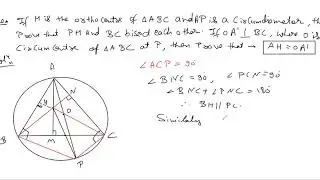 If H is the orthocentre of △ABC and AP is a Circumdiameter, the
Prove that PH and BC bisect each other. If OA' ⊥ BC, where O is
Circumcentre of △ABC at P, then prove that → AH = 2OA'
∠ACP = 90°
∠BNC = 90, ∠PCN = 90°
∠BNC + ∠PNC = 180°
∴ BH || PC.
Similarly
A
N
O
B
M
C
P